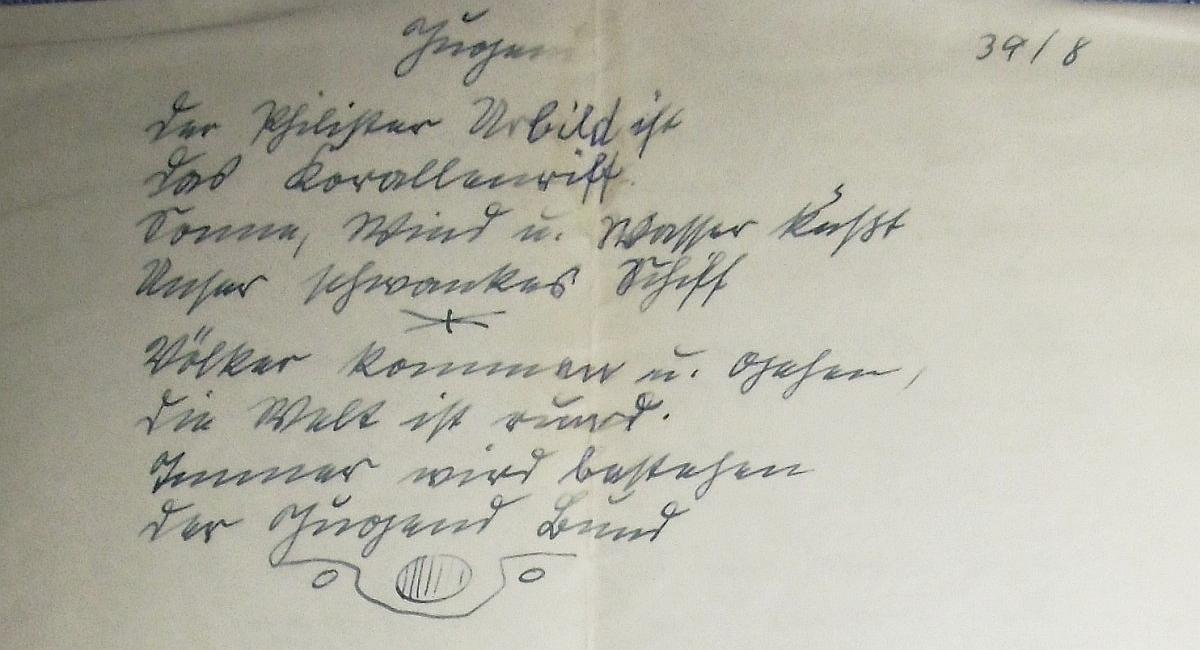 Jugend
39/8
Der Philister Urbild ist
Das Korallenriff.
Sonne, Wind u. Wasser küßt
Unser schwankes Schiff
Völker kommen u. gehen,
Die Welt ist rund.
Immer wird bestehen
Der Jugend Bund